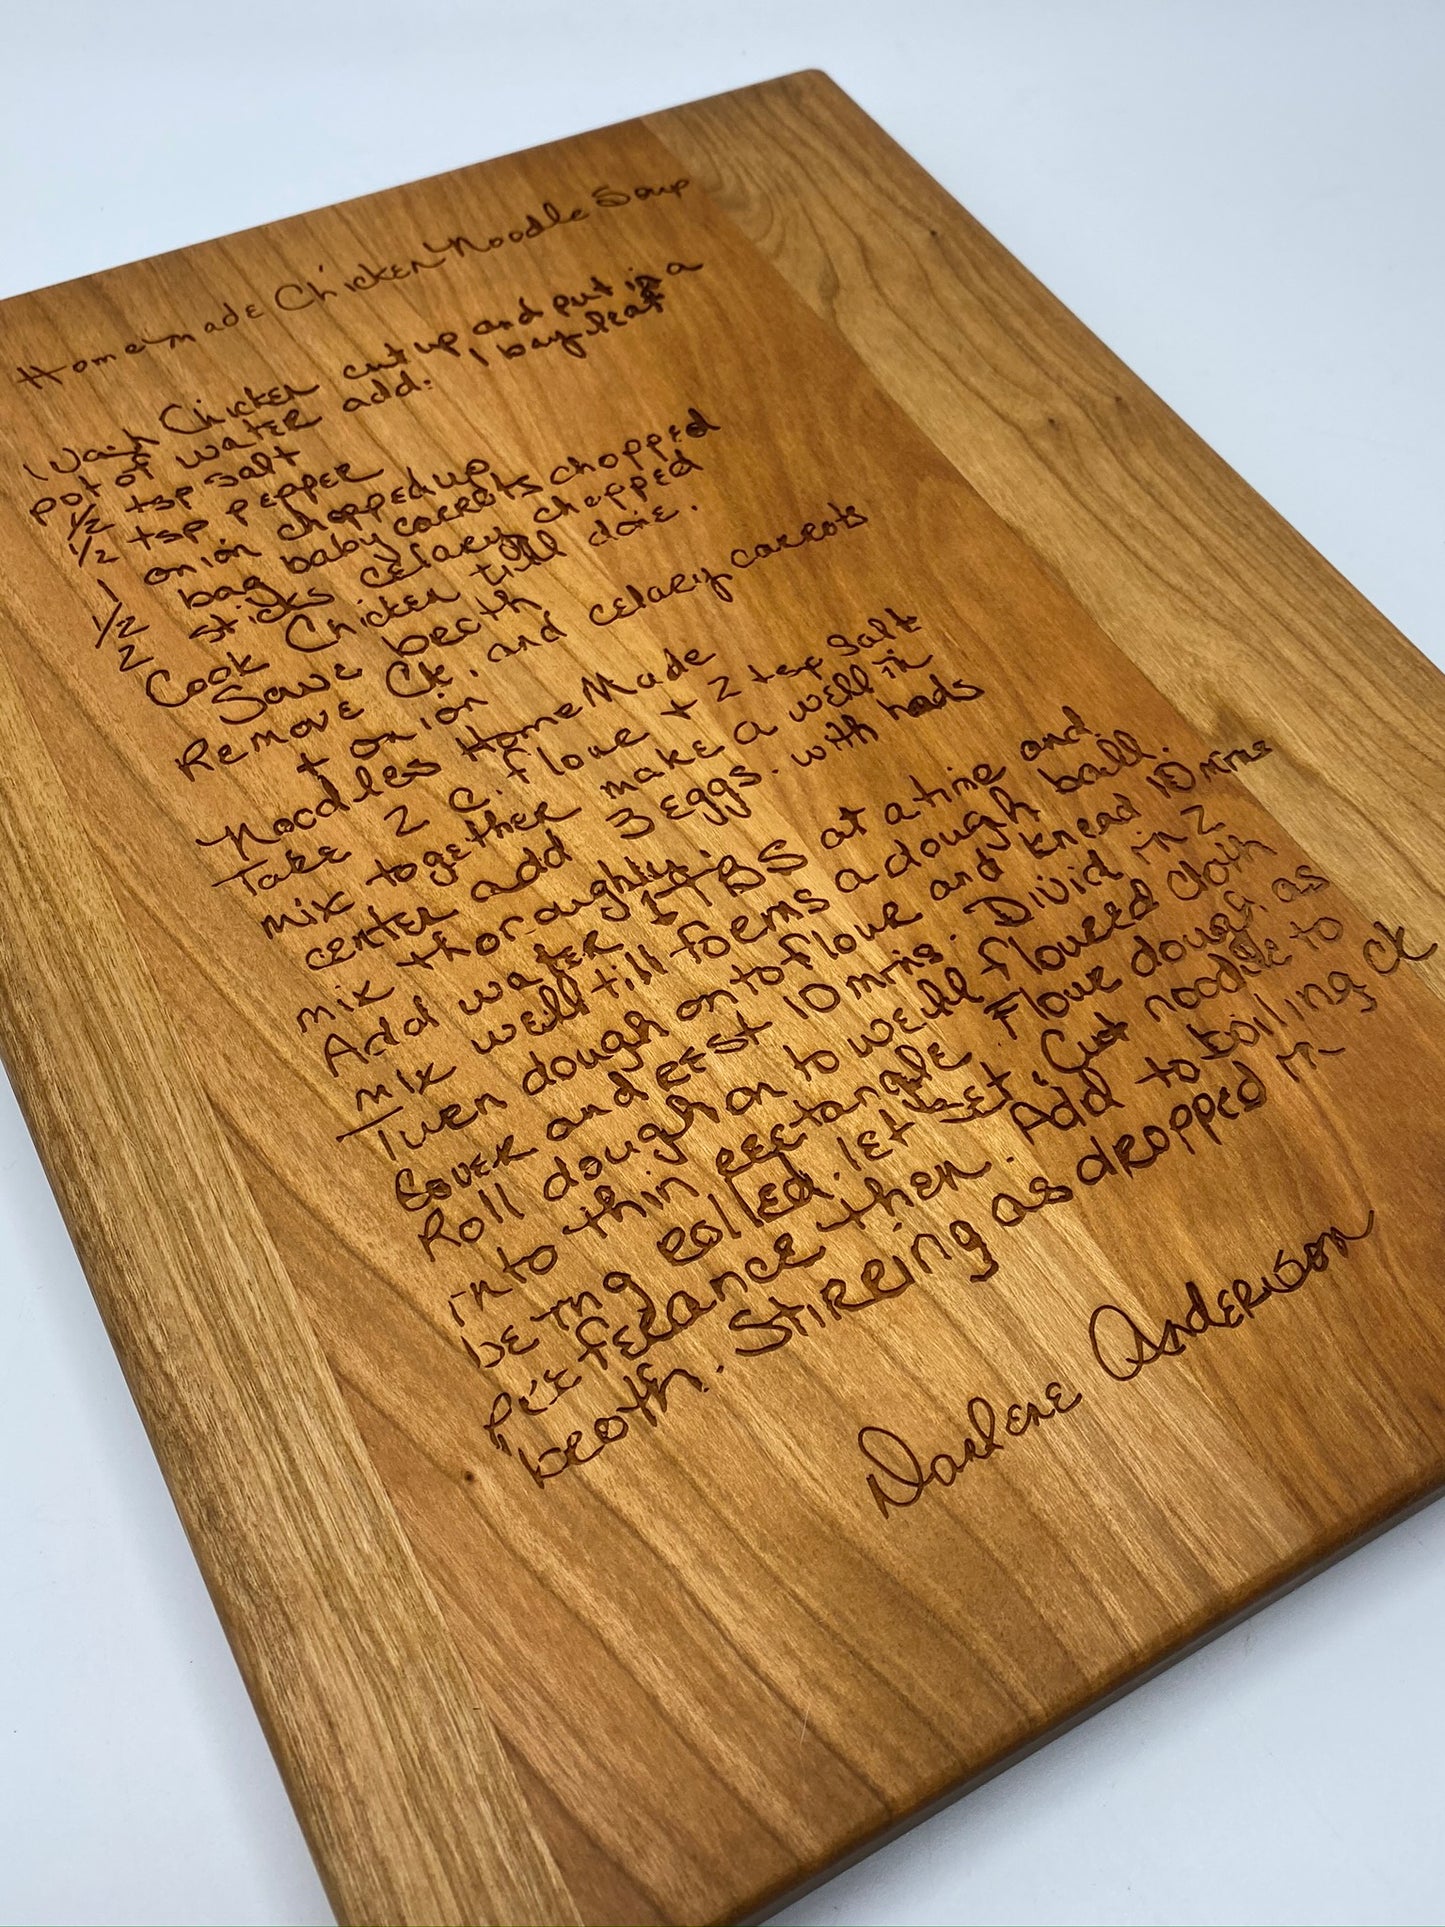 Homemade Chicken Noodle Soup
Wash Chicken cut up and put in a
pot of water add: 1 bay leaf
1/2 tsp salt
1/2 tsp pepper
1 onion chopped up
1/2 bag baby carrots chopped
2 sticks celary chopped
Cook Chicken till done.
Save broth
Remove Ck. and celary carrots
+ onion
Noodles HomeMade
Take 2 c. floue + 2 tsp salt
mix together make a well in
center add 3 eggs. with hads
mix thoroughly.
Add water 1 TBS at a time and
mix well till forms a dough ball.
Turn dough onto floue and knead 10 mins
Cover and rest 10 mins. Divid in 2
Roll dough on to well floured cloth
into thin rectangle. Flour dough as
being rolled. let set. Cut noodle to
preferance then. Add to boiling ck
broth. Stirring as dropped in
Darlene Anderson